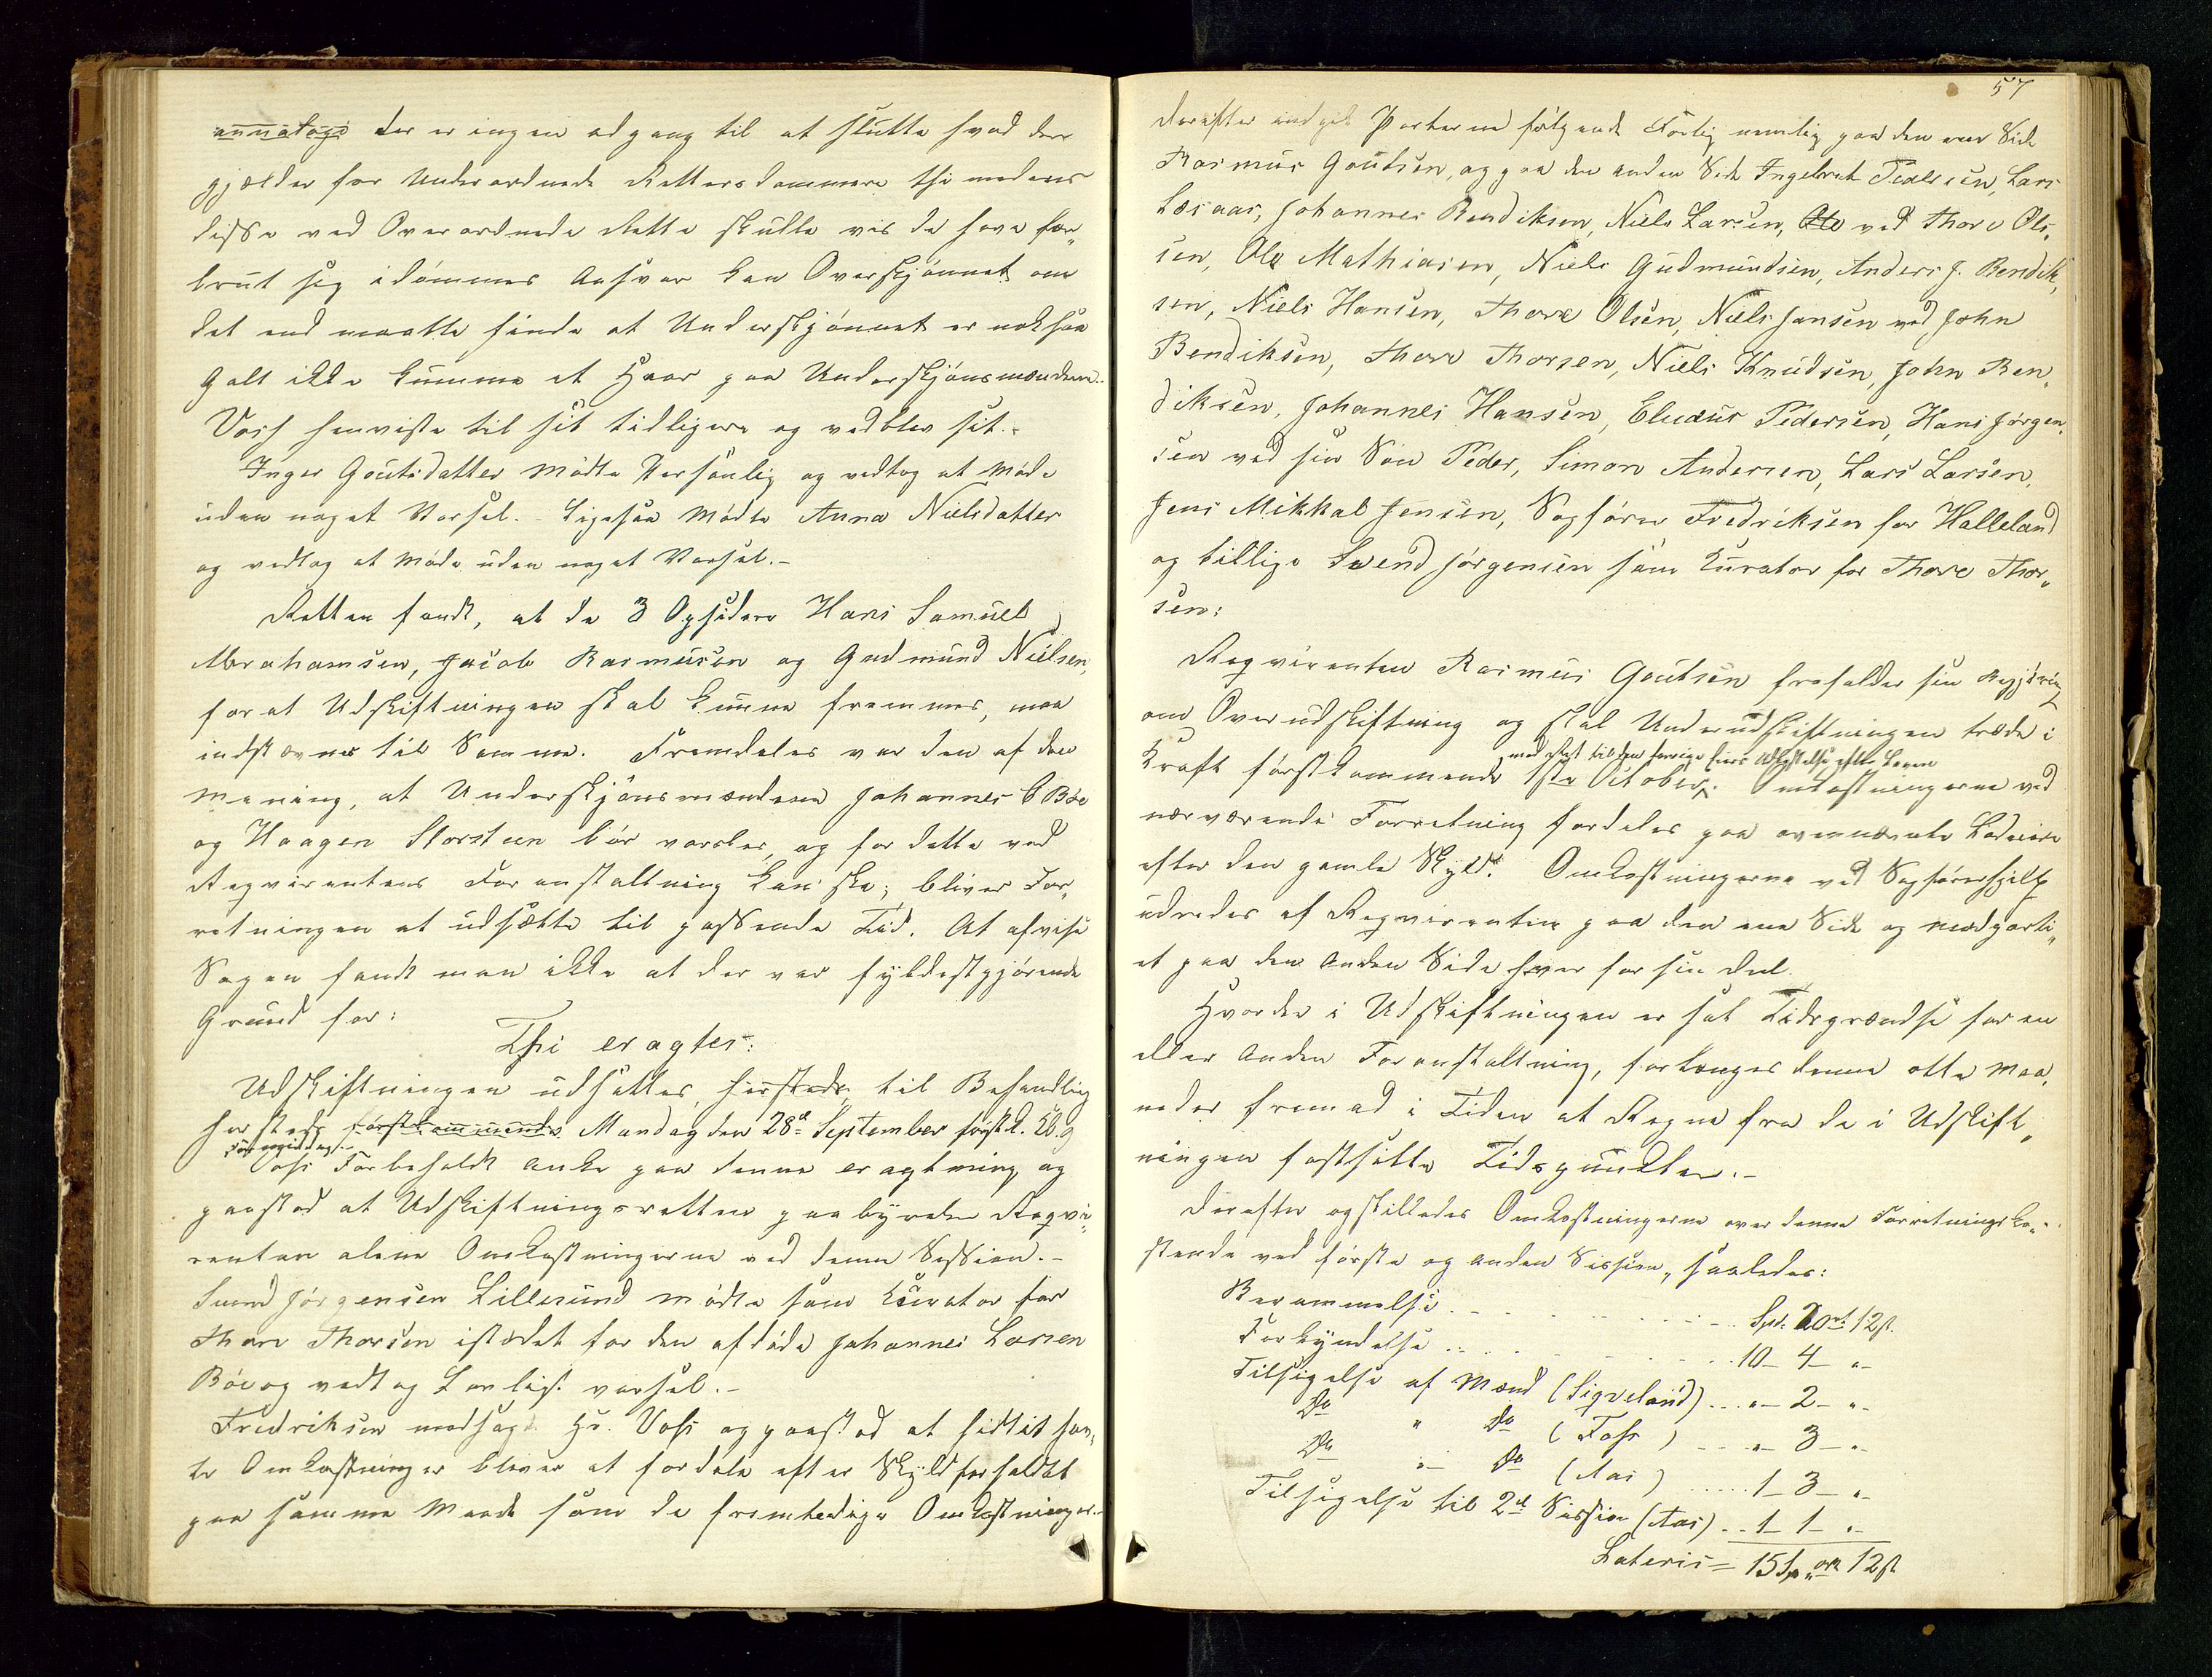 analogi der er ingen adgang til at slutte hvad der
gjælder for Underordnede Rettersdommere thi medens
disse ved Overordnede Rette skulle vis de have for„
brut sig idømmes Ansvar kan Overskjønnet om
det end maatte finde at Underskjønnet er nok saa
Galt ikke kumme et Haar paa Underskjønsmændene.-
Voss henviste til sit tidligere og vedblev sit.-
Inger Goutsdatter mødte Personlig og vedtog at møde
uden noget Varsel.- Ligesaa mødte Anna Nielsdatter
og vedtog at møde uden noget Varsel.-
Retten fandt, at de 3 Opsidere Hans Samuel
Abrahamsen, Jacob Rasmusen og Gudmund Nielsen,
for at Udskiftningen skal kunne fremmes, maa
indstævnes til Samme. Fremdeles var den af den
Mening, at Underskjønsmændene Johannes C Bøe
og Haagen Storsteen bør varsles, og for dette ved
Reqvirentens Foranstaltning kan ske; bliver For„
retningen at udsætte til passende Tid. At afvise
Sagen fandt man ikke at der var fyldestgjørende
Grund for:
Thi eragtes:
Udskiftningen udsættes, hersteds, til Behandling
hersteds førstkommende Mandag den 28de September førstk. Kl. 9
Formiddag.-
Voss Forbeholdt Anke paa denne eragtning og
paastod at Udskiftningsretten paabyrder Reqvi„
renten alene Omkostningerne ved denne Session.-
Svend Jørgensen Lillesund mødte som Kurator for
Thore Thorsen istedet for den afdøde Johannes Larsen
Bøe og vedtog Lovligt varsel.-
Fredriksen modsagde Hr. Voss og paastod at sidst hav„
te Omkostninger bliver at fordele efter Skyldforholdet
paa samme Maade som de fremtidige Omkostninger.-
57
Derefter indgik Parterne følgende Forlig nemlig paa den ene Side
Rasmus Goutsen, og paa den anden Side Ingebret Pedersen, Lars
Læsaas, Johannes Bendiksen, Niels Larsen, Ole ved Thore Ols„
sen, Ole Mathiasen, Niels Gudmundsen, Anders J. Bendik„
sen, Niels Hansen, Thore Olsen, Niels Jansen ved John
Bendiksen, Thore Thorsen, Niels Knudsen, John Ben„
diksen, Johannes Hansen, Eludus Pedersen, Hans Jørgen„
sen ved sin Søn Peder, Simon Andersen, Lars Larsen,
Jens Mikkal Jensen, Sagfører Fredriksen for Halleland
og tillige Svend Jørgensen som Kurator for Thore Thor„
sen:
Reqvirenten Rasmus Goutsen frafalder sin Begjæring
om Overudskiftning og skal Underudskiftningen træde i
med Ret til den forrige Eiers Afhøstelse efter Loven
Kraft førstkommende 1ste October. Omkostningerne ved
nærværende Forretning fordeles paa ovennævnte Lodeiere
efter den gamle Skyld. Omkostningerne ved Sagførerhjelp
udredes af Reqvirenten paa den ene Side og modparti„
et paa den Anden Side hver for sin Deel
Hvorder i Udskiftningen er sat Tidsgrændse for en
eller Anden Foranstaltning, forlænges denne otte Maa„
neder fremad i Tiden at Regne fra de i Udskift„
ningen fastsatte Tidspunkter.-
Derefter opstilledes Omkostningerne over denne Forretnings be„
staaende ved første og anden Session, saaledes:
Berammelse . - . . . . . - . - . . Spd. 2 0 ort 12 s.
Forkyndelse . . . - . . . 10 - 4 - „-
Tilsigelse af Mænd (Sigveland) . . . „- 2 - „-
Do „ Do (Foss) - - . . „- 3 - „-
Do „- Do (Aas) . . . . . 1 - 3 - „-
Tilsigelse til 2den Session (Aas) . . 1 - 1 - „-
Lateris = 15 Sp „ ort 12 s